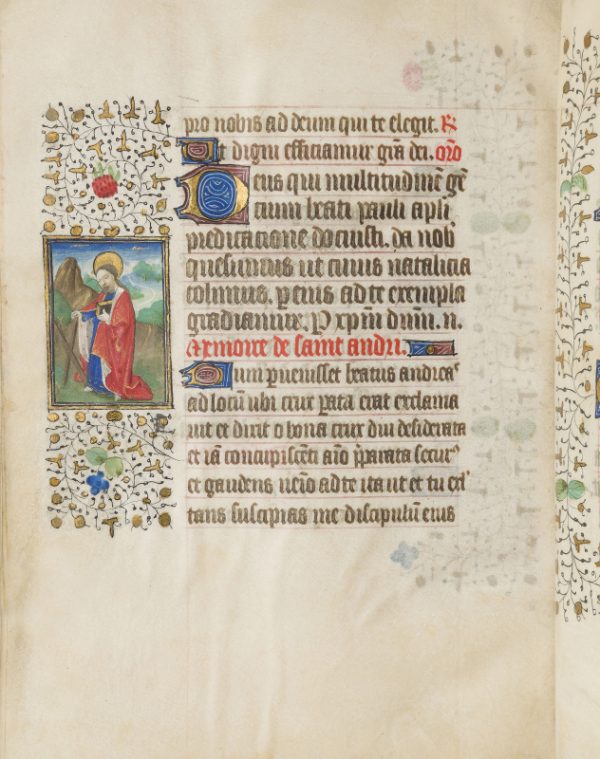 pro nobis ad deum qui te elegit. R
Ut digni efficiamur gr̄a dei. or̄o
Deus qui multitudinē gē
tium beati pauli apl̄i
predicatione docuisti. da nob
quesumus ut cuius natalicia
colimus. ꝑ eius ad te exempla
gradiamur. P xp̄m dn̄m. n.
Memoire de saint andri.
Cum ꝑuenisset beatus andreaˢ
ad locū ubi crux ꝑata erat exclama
uit et dixit o bona crux diu desiderata
et iā concupiscēti aīo p̄parata securˢ
et gaudens uenio ad te ita ut et tu exl'
tans suscipias me discipulū eius